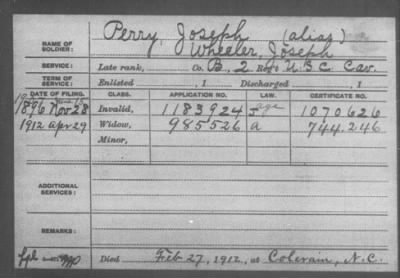 Perry, Joseph (alias)
NAME OF SOLDIER: Wheeler, Joseph
SERVICE: Late rank, Co. B, 2 Reg't U.S.C. Cav.
TERM OF SERVICE: Enlisted , 1 Discharged , 1
DATE OF FILING. CLASS. APPLICATION NO. LAW. CERTIFICATE NO.
1896 Nov 28 Invalid, 1183924 age 1070626
1912 Apr 29 Widow, 985526 a 744.246
Minor,
ADDITIONAL SERVICES:
REMARKS:
Died Feb 27, 1912, at Colerain, N.C.